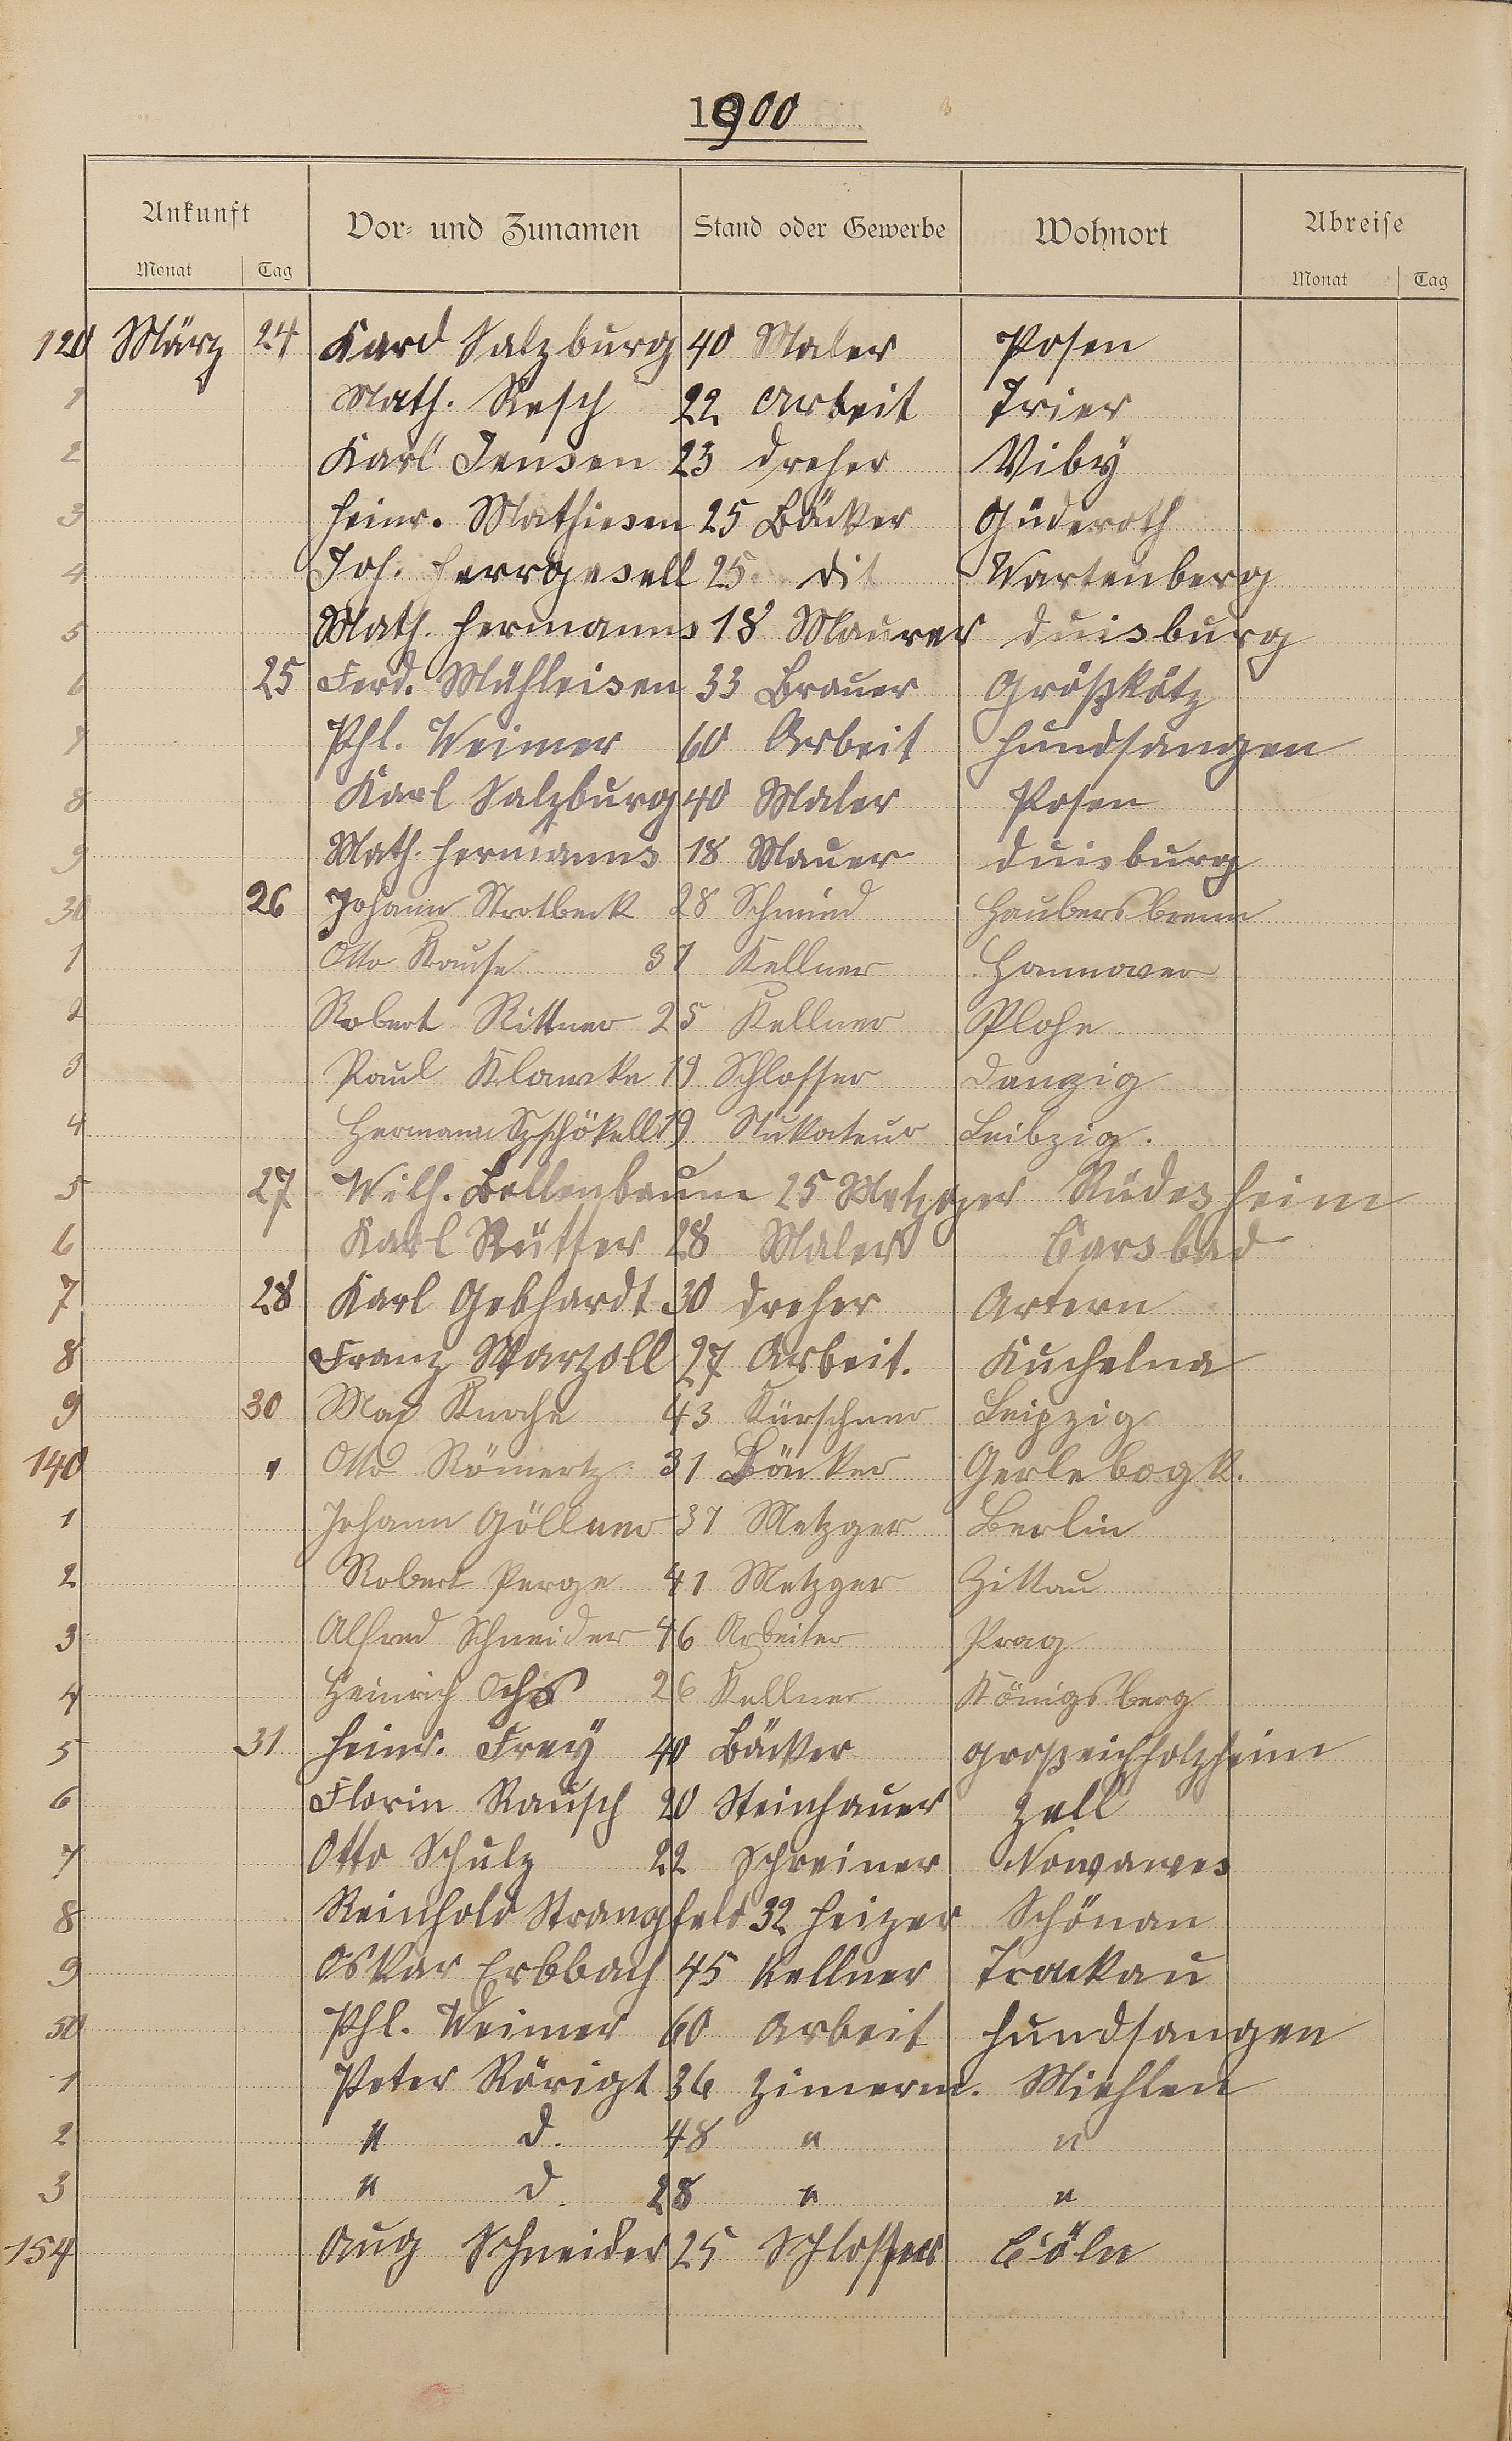 1900
Ankunft Vor- und Zunamen Stand oder Gewerbe Wohnort Abreise
Monat Tag Monat Tag
120 März 24 Karl Salzburg 40 Maler Posen
1 Math. Resch 22 Arbeit Trier
2 Karl Jensen 23 Dreher Viby
3 Heinr. Mathiesen 25 Bäcker Güderoth
4 Joh. Herrgesell 25 dit Wartenberg
5 Math. Hermanns 18 Maurer Duisburg
6 25 Ferd. Mühleisen 33 Brauer Großkötz
7 Phl. Weimer 60 Arbeit Hundsangen
8 Karl Salzburg 40 Maler Posen
9 Math. Hermanns 18 Mauer Duisburg
30 26 Johann Strotbeck 28 Schmied Haubersbronn
1 Otto Krause 31 Kellner Hannover
2 Robert Rittner 25 Kellner Plohe
3 Paul Klawcke 19 Schlosser Danzig
4 Hermann 19 Stukateur Leibzig.
5 27 Wilh. Bollenbaum 25 Metzger Rüdesheim
6 Karl Rütter 28 Maler Carsbad
7 28 Karl Gebhardt 30 Dreher Artern
8 Franz Marzoll 27 Arbeit. Kuchelna
9 30 Max Knoche 43 Kürschner Leipzig
140 " Otto Römertz 31 Bäcker Gerlebogk.
1 Johann Göllner 37 Metzger Berlin
2 Robert Perge 41 Metzger Zittau
3 Alfred Schneider 46 Arbeiter Prag
4 Heinrich Ochs 26 Kellner Königsberg
5 31 Heinr. Frey 40 Bäcker Großeichholzheim
6 Florin Rausch 20 Steinhauer Zell
7 Otto Schulz 22 Schreiner Nowawes
8 Reinhold Strangfeld 32 Heizer Schönau
9 Oskar Erbbach 45 Kellner Trackau
50 Phl. Weimer 60 Arbeit Hundsangen
1 Peter Rörigt 36 Zimerm. Miehlen
2 " d. 48 " "
3 " d. 28 " "
154 Aug Schneider 25 Schlosser Cöln